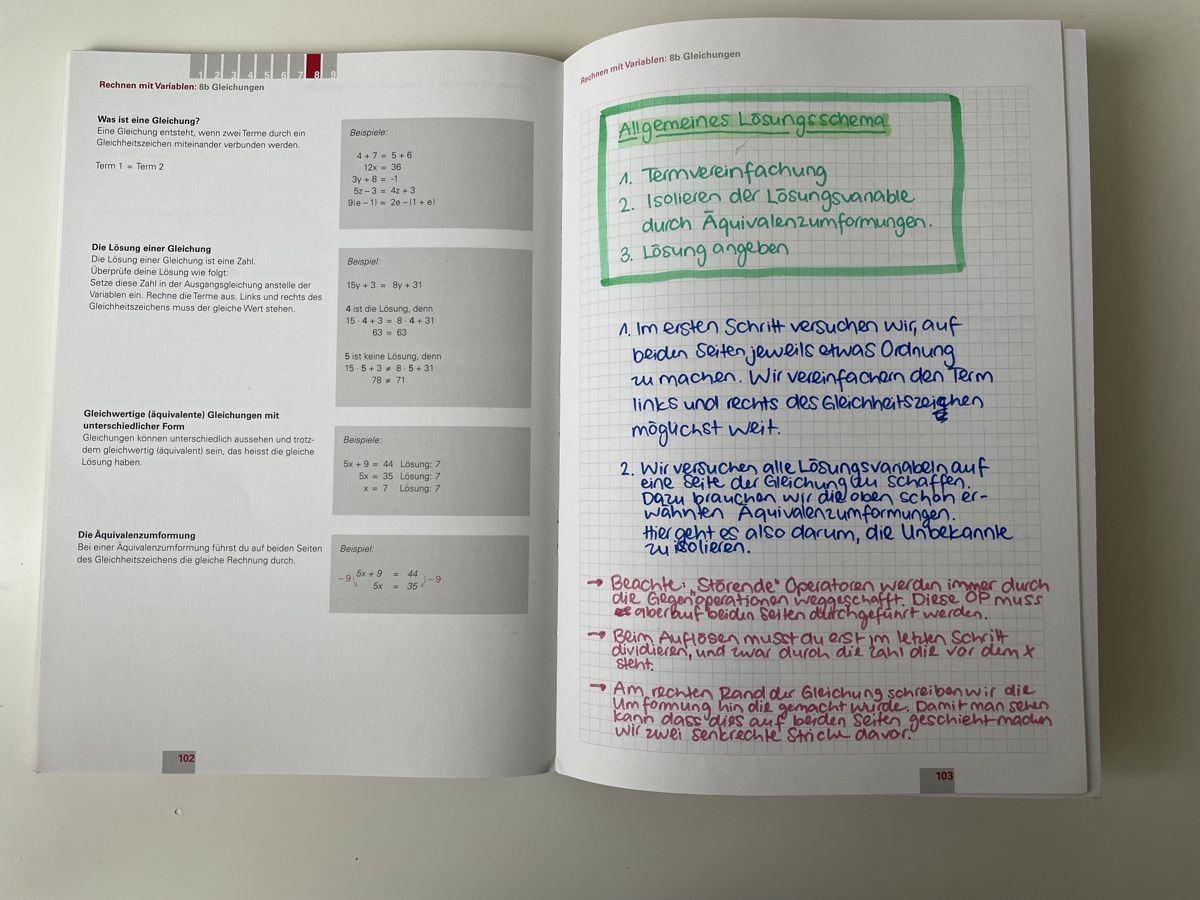 1 2 3 4 5 6 7 8 9
Rechnen mit Variablen: 8b Gleichungen
Was ist eine Gleichung?
Eine Gleichung entsteht, wenn zwei Terme durch ein
Gleichheitszeichen miteinander verbunden werden.
Term 1 = Term 2
Beispiele:
4 + 7 = 5 + 6
12x = 36
3y + 8 = -1
5z – 3 = 4z + 3
9(e – 1) = 2e – (1 + e)
Die Lösung einer Gleichung
Die Lösung einer Gleichung ist eine Zahl.
Überprüfe deine Lösung wie folgt:
Setze diese Zahl in der Ausgangsgleichung anstelle der
Variablen ein. Rechne die Terme aus. Links und rechts des
Gleichheitszeichens muss der gleiche Wert stehen.
Beispiel:
15y + 3 = 8y + 31
4 ist die Lösung, denn
15 · 4 + 3 = 8 · 4 + 31
63 = 63
5 ist keine Lösung, denn
15 · 5 + 3 ≠ 8 · 5 + 31
78 ≠ 71
Gleichwertige (äquivalente) Gleichungen mit
unterschiedlicher Form
Gleichungen können unterschiedlich aussehen und trotz-
dem gleichwertig (äquivalent) sein, das heisst die gleiche
Lösung haben.
Beispiele:
5x + 9 = 44 Lösung: 7
5x = 35 Lösung: 7
x = 7 Lösung: 7
Die Äquivalenzumformung
Bei einer Äquivalenzumformung führst du auf beiden Seiten
des Gleichheitszeichens die gleiche Rechnung durch.
Beispiel:
– 9 5x + 9 = 44 – 9
5x = 35
102
Rechnen mit Variablen: 8b Gleichungen
Allgemeines Lösungsschema
1. Termvereinfachung
2. Isolieren der Lösungsvariable
durch Äquivalenzumformungen.
3. Lösung angeben
1. Im ersten Schritt versuchen wir, auf
beiden Seiten jeweils etwas Ordnung
zu machen. Wir vereinfachen den Term
links und rechts des Gleichheitszeichen
möglichst weit.
2. Wir versuchen alle Lösungsvariabeln auf
eine Seite der Gleichung zu schaffen.
Dazu brauchen wir die oben schon er-
wähnten Äquivalenzumformungen.
Hier geht es also darum, die Unbekannte
zu isolieren.
→ Beachte: „Störende" Operatoren werden immer durch
die Gegenoperationen weggeschafft. Diese OP muss
aber auf beiden Seiten durchgeführt werden.
→ Beim Auflösen musst du erst im letzten Schritt
dividieren, und zwar durch die Zahl die vor dem x
steht.
→ Am rechten Rand der Gleichung schreiben wir die
Umformung hin die gemacht wurde. Damit man sehen
kann dass dies auf beiden Seiten geschieht machen
wir zwei senkrechte Striche davor.
103